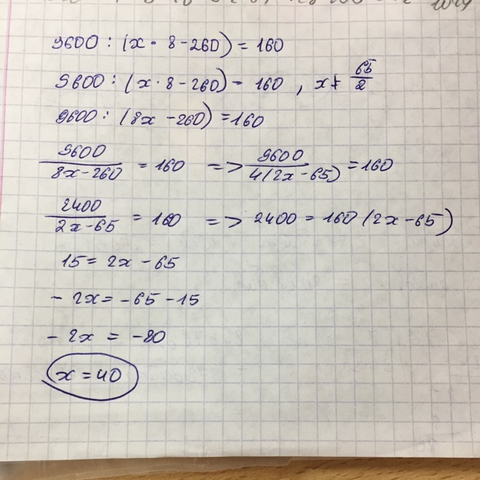 9600 : (x · 8 - 260) = 160
9600 : (x · 8 - 260) = 160 , x ≠ 65/2
9600 : (8x - 260) = 160
9600/(8x - 260) = 160 => 9600/(4(2x - 65)) = 160
2400/(2x - 65) = 160 => 2400 = 160 (2x - 65)
15 = 2x - 65
- 2x = - 65 - 15
- 2x = - 80
x = 40